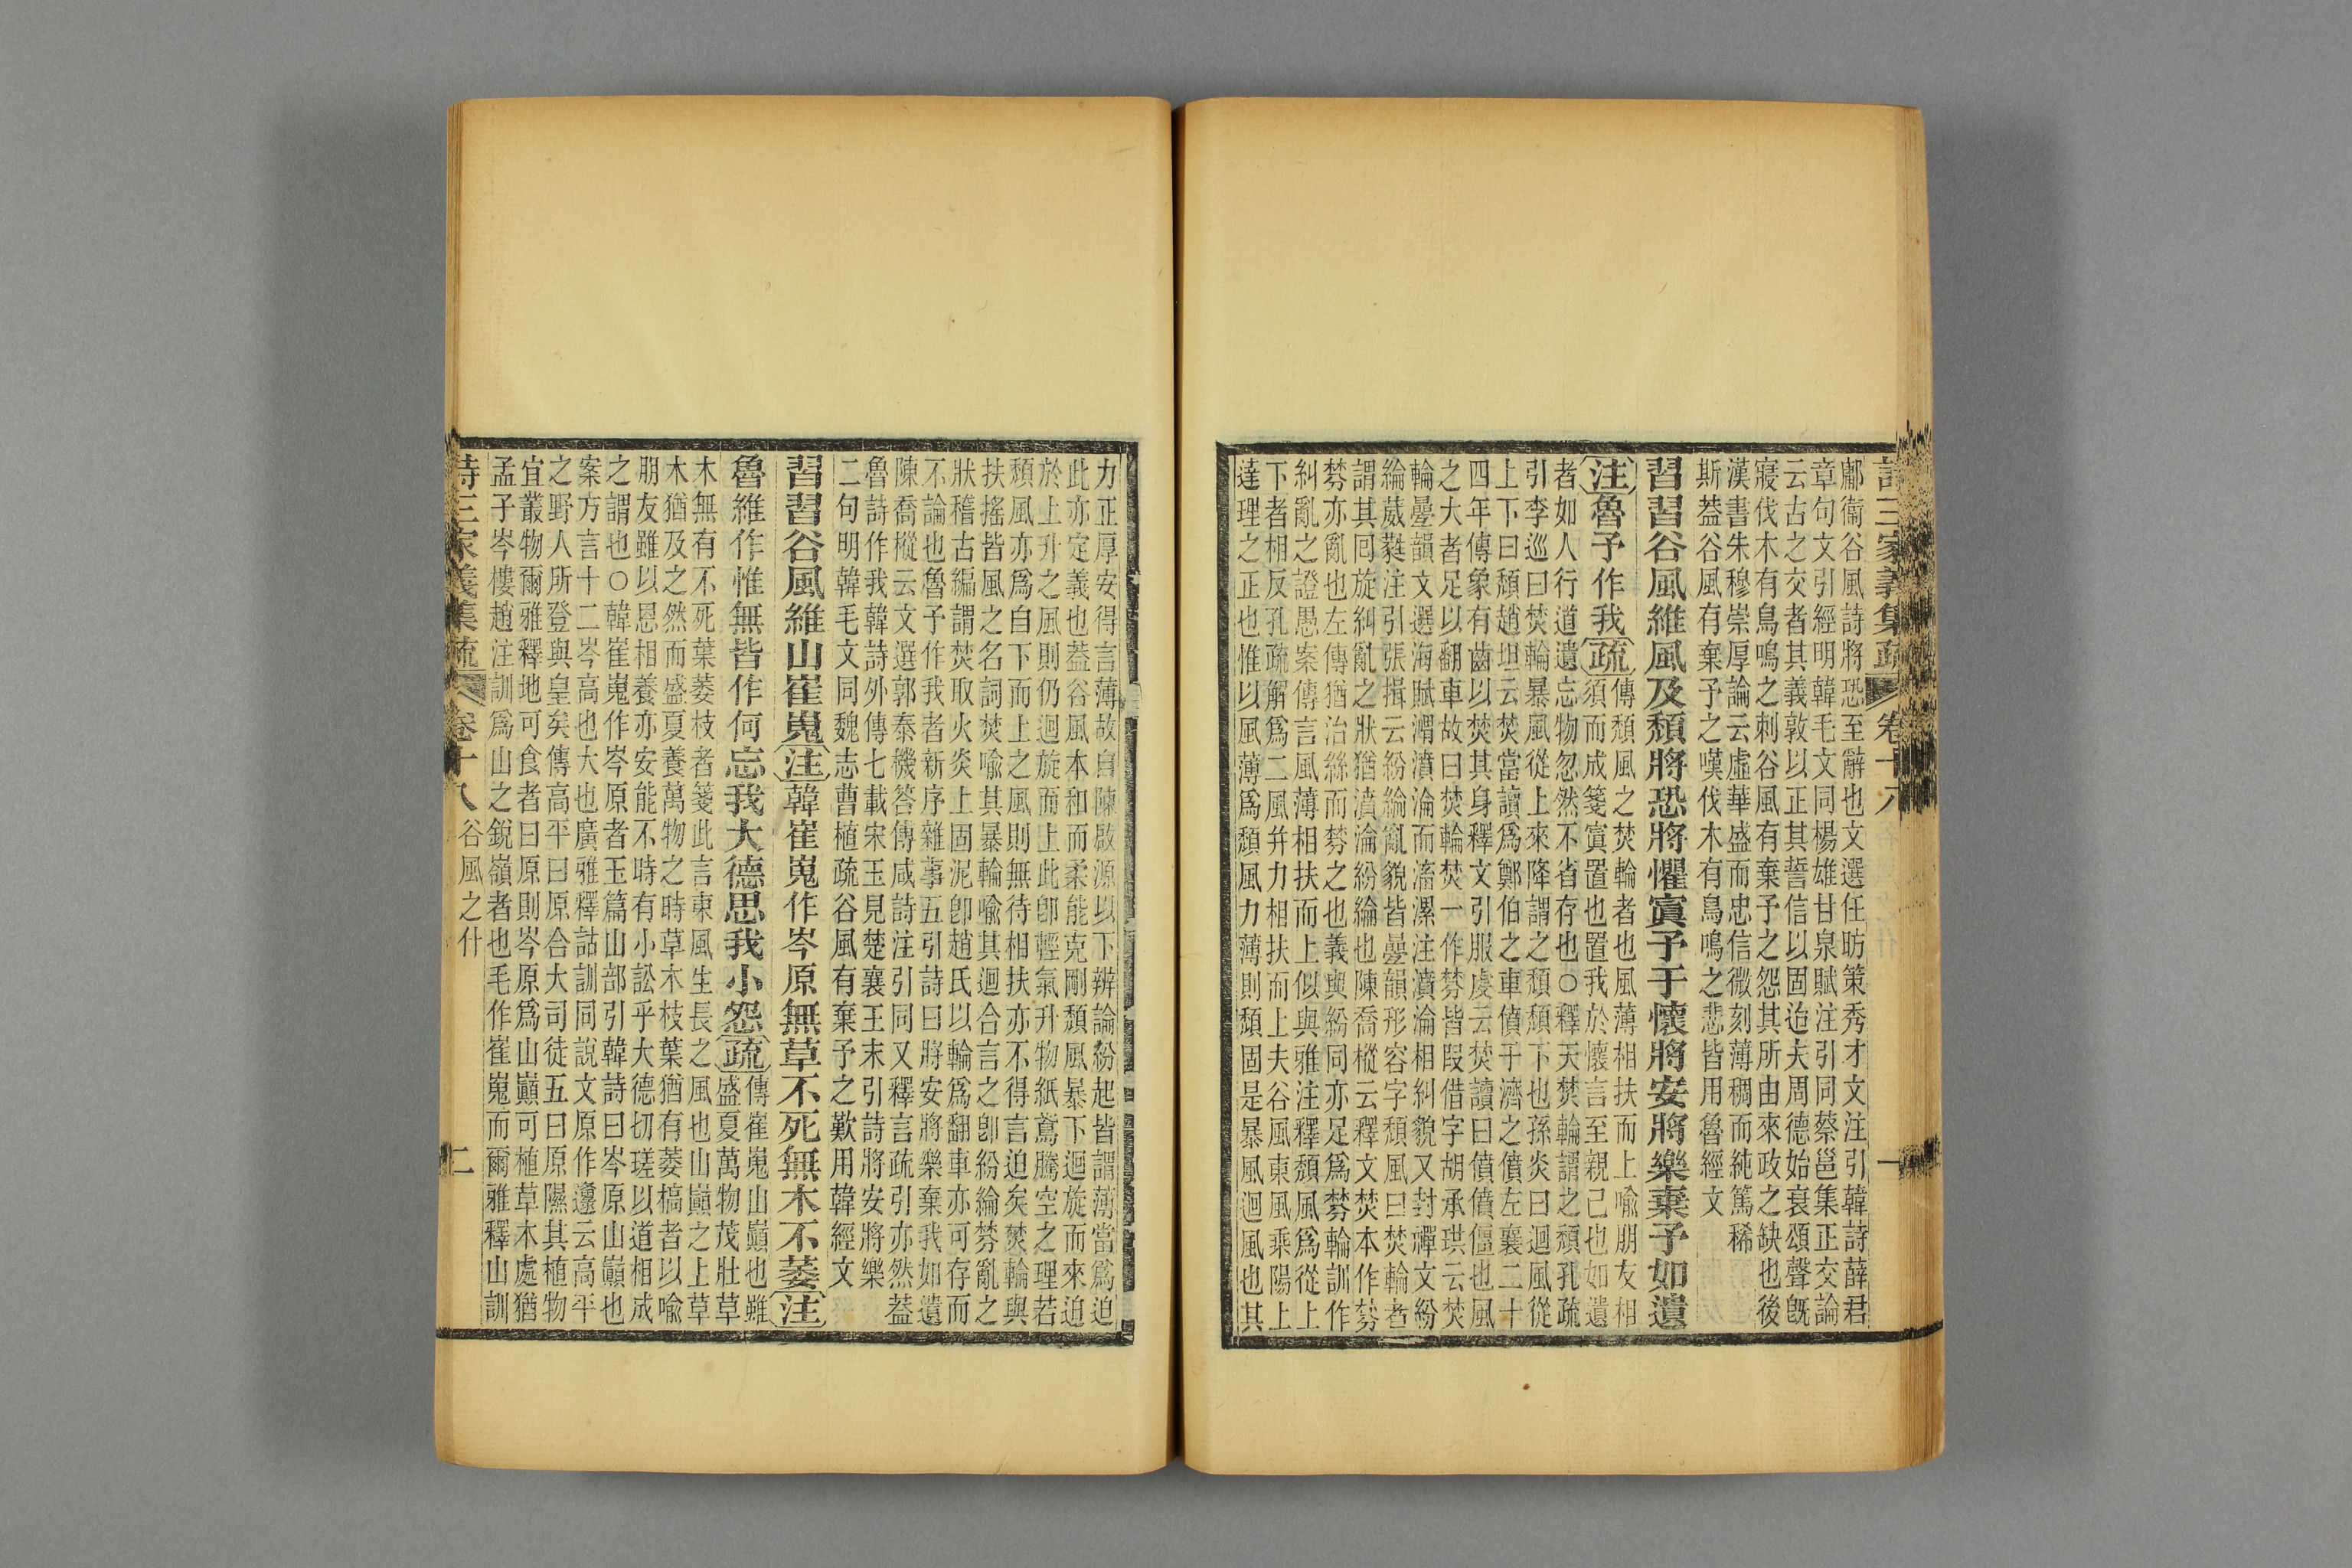 詩三家義集疏 卷十八 一
鄘衞谷風詩將恐至辭也文選任昉策秀才文注引韓詩薛君
章句文引經明韓毛文同楊雄甘泉賦注引同蔡邕集正交論
云古之交者其義敦以正其誓信以固迨夫周德始衰頌聲旣
寢伐木有鳥鳴之刺谷風有棄予之怨其所由來政之缺也後
漢書朱穆崇厚論云虛華盛而忠信微刻薄稠而純篤稀
斯葢谷風有棄予之嘆伐木有鳥鳴之悲皆用魯經文
習習谷風維風及頹將恐將懼寘予于懷將安將樂棄予如遺
注魯予作我疏
傳頹風之焚輪者也風薄相扶而上喻朋友相
須而成箋寘置也置我於懷言至親己也如遺
者如人行道遺忘物忽然不省存也○釋天焚輪謂之頹孔疏
引李巡曰焚輪暴風從上來降謂之頹頹下也孫炎曰迴風從
上下曰頹趙坦云焚當讀爲鄭伯之車僨于濟之僨左襄二十
四年傳象有齒以焚其身釋文引服虔云焚讀曰僨僨僵也風
之大者足以翻車故曰焚輪焚一作棼皆叚借字胡承珙云焚
輪疊韻文選海賦潤濆淪而滀漯注濆淪相糾貌又封禪文紛
綸葳蕤注引張揖云紛綸亂貌皆疊韻形容字頹風曰焚輪者
謂其囘旋糾亂之狀猶濆淪紛綸也陳喬樅云釋文焚本作棼
棼亦亂也左傳猶治絲而棼之也義與紛同亦足爲棼輪訓作
糾亂之證愚案傳言風薄相扶而上似與雅注釋頹風爲從上
下者相反孔疏解爲二風幷力相扶而上夫谷風東風乘陽上
達理之正也惟以風薄爲頹風力薄則頹固是暴風迴風也其
力正厚安得言薄故自陳啟源以下辨論紛起皆謂薄當爲迫
此亦定義也葢谷風本和而柔能克剛頹風暴下迴旋而來迫
於上升之風則仍迴旋而上此卽輕氣升物紙鳶騰空之理若
頹風亦爲自下而上之風則無待相扶亦不得言迫矣焚輪與
扶搖皆風之名詞焚喻其暴輪喻其迴合言之卽紛綸棼亂之
狀稽古編謂焚取火炎上固泥卽趙氏以輪爲翻車亦可存而
不論也魯予作我者新序雜事五引詩曰將安將樂棄我如遺
陳喬樅云文選郭泰機答傅咸詩注引同又釋言疏引亦然葢
魯詩作我韓詩外傳七載宋玉見楚襄王末引詩將安將樂
二句明韓毛文同魏志曹植疏谷風有棄予之歎用韓經文
習習谷風維山崔嵬注韓崔嵬作岑原無草不死無木不萎注
魯維作惟無皆作何忘我大德思我小怨疏
傳崔嵬山巔也雖
盛夏萬物茂壯草
木無有不死葉萎枝者箋此言東風生長之風也山巔之上草
木猶及之然而盛夏養萬物之時草木枝葉猶有萎槁者以喻
朋友雖以恩相養亦安能不時有小訟乎大德切瑳以道相成
之謂也○韓崔嵬作岑原者玉篇山部引韓詩曰岑原山巔也
案方言十二岑高也大也廣雅釋詁訓同說文原作邍云高平
之野人所登與皇矣傳高平曰原合大司徒五曰原隰其植物
宜叢物爾雅釋地可食者曰原則岑原爲山巔可植草木處猶
孟子岑樓趙注訓爲山之銳嶺者也毛作崔嵬而爾雅釋山訓
詩三家義集疏 卷十八 谷風之什 二